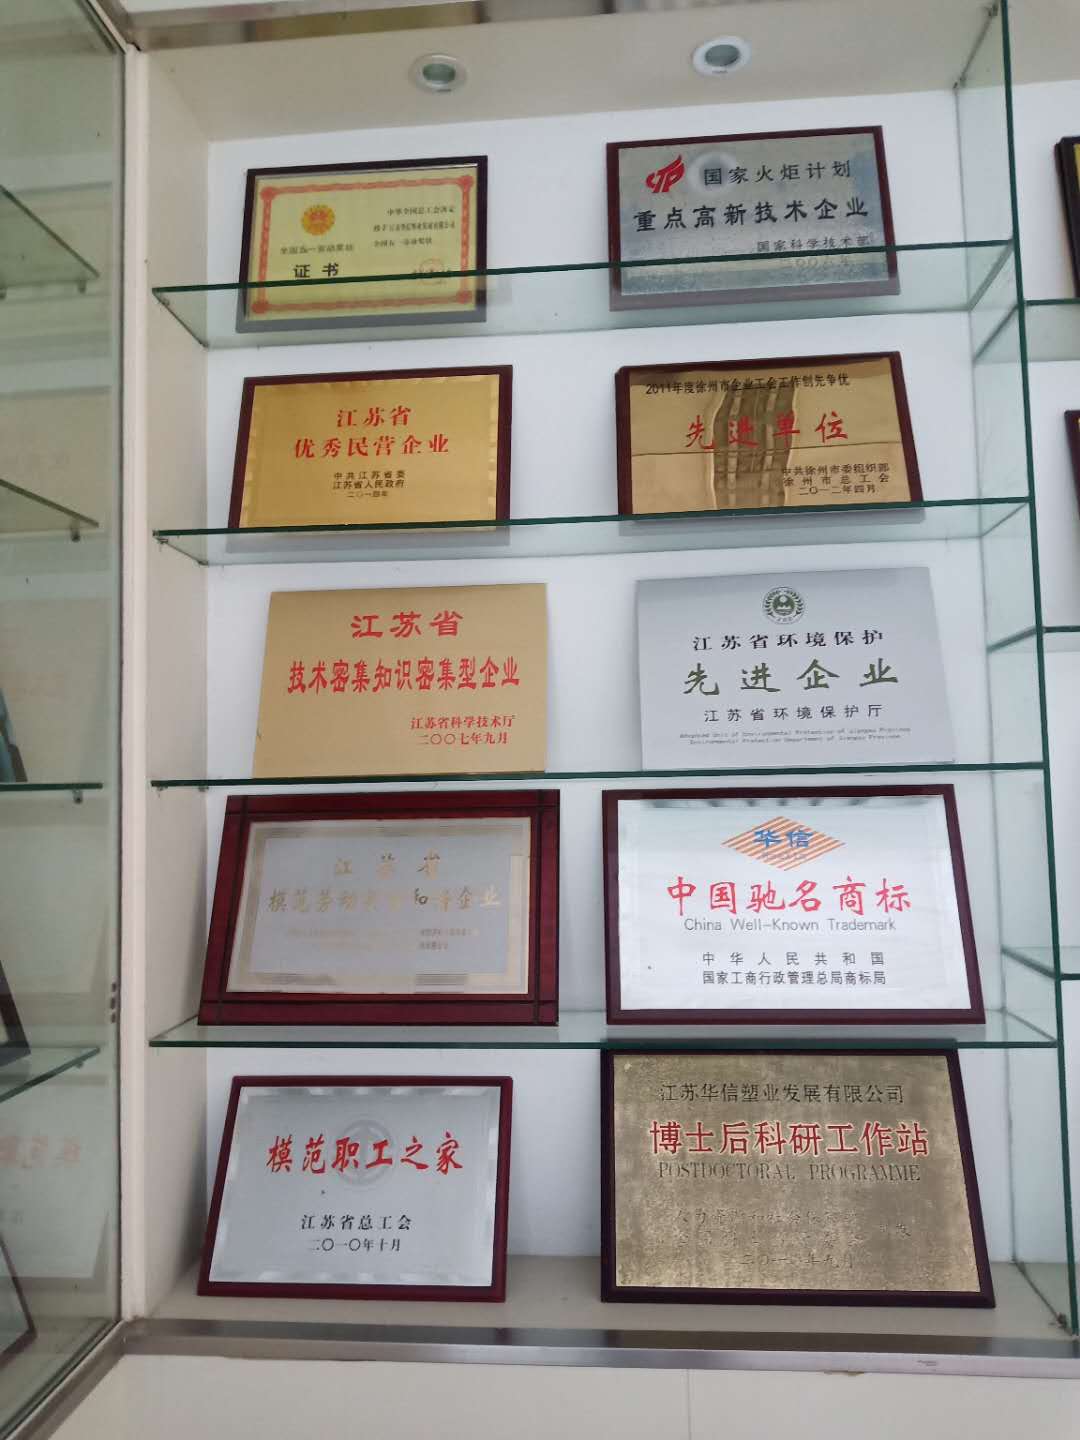 中华全国总工会决定
全国五一劳动奖状
证书
国家火炬计划
重点高新技术企业
国家科学技术部
二〇〇六年
江苏省
优秀民营企业
中共江苏省委
江苏省人民政府
二〇一四年
2011年度徐州市企业工会工作创先争优
先进单位
中共徐州市委组织部
徐州市总工会
二〇一二年四月
江苏省
技术密集知识密集型企业
江苏省科学技术厅
二〇〇七年九月
江苏省环境保护
先进企业
江苏省环境保护厅
Advanced Unit of Environmental Protection of Jiangsu Province
Environmental Protection Department of Jiangsu Province
江苏省
模范劳动关系和谐企业
华信
中国驰名商标
China Well-Known Trademark
中华人民共和国
国家工商行政管理总局商标局
模范职工之家
江苏省总工会
二〇一〇年十月
江苏华信塑业发展有限公司
博士后科研工作站
POSTDOCTORAL PROGRAMME